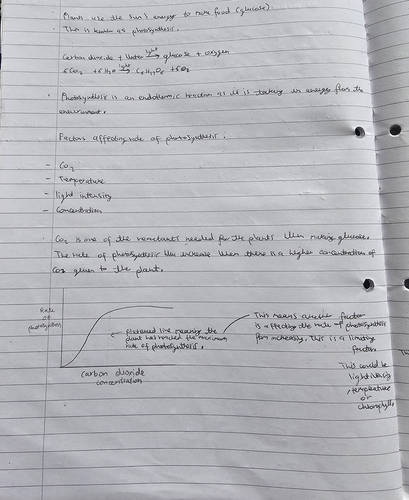 Plants use the Sun's energy to make food (glucose).
This is known as photosynthesis.
Carbon dioxide + Water light→ glucose + oxygen
6CO₂ + 6H₂O light→ C₆H₁₂O₆ + 6O₂
Photosynthesis is an endothermic reaction as it is taking in energy from the
environment.
Factors affecting rate of photosynthesis.
- CO₂
- Temperature
- light intensity
- Concentration
CO₂ is one of the reactants needed for the plants when making glucose.
The rate of photosynthesis will increase when there is a higher concentration of
CO₂ given to the plant.
Rate
of
photosynthesis
flattened line meaning the
plant has reached the maximum
rate of photosynthesis.
carbon dioxide
concentration
This means another factor
is affecting the rate of photosynthesis
from increasing. This is a limiting
factor.
This could be
light intensity
, temperature
or
chlorophyll.